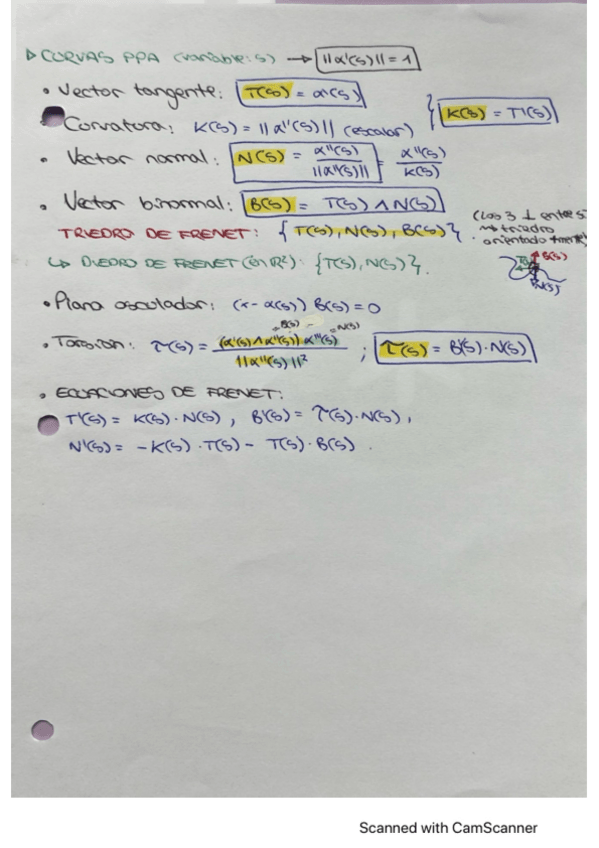 ▷ CURVAS PPA (variable: s) → ||α'(s)|| = 1
• Vector tangente: T(s) = α'(s)
• Curvatura: K(s) = ||α''(s)|| (escalar) { K(s) = T'(s)
• Vector normal: N(s) = α''(s) / ||α''(s)|| = α''(s) / K(s)
• Vector binormal: B(s) = T(s) ∧ N(s)
(Los 3 ⊥ entre sí
⇝ triedro
orientado +mente)
TRIEDRO DE FRENET: { T(s), N(s), B(s) }
B(s)
T(s)
N(s)
↳ DIEDRO DE FRENET (en R²): {T(s), N(s)}.
• Plano osculador: (x - α(s)) B(s) = 0
• Torsion: τ(s) = (α'(s) ∧ α''(s)) α'''(s) / ||α''(s)||² ; τ(s) = B'(s) · N(s)
• ECUACIONES DE FRENET:
T'(s) = K(s) · N(s), B'(s) = τ(s) · N(s),
N'(s) = -K(s) · T(s) - τ(s) · B(s).
Scanned with CamScanner